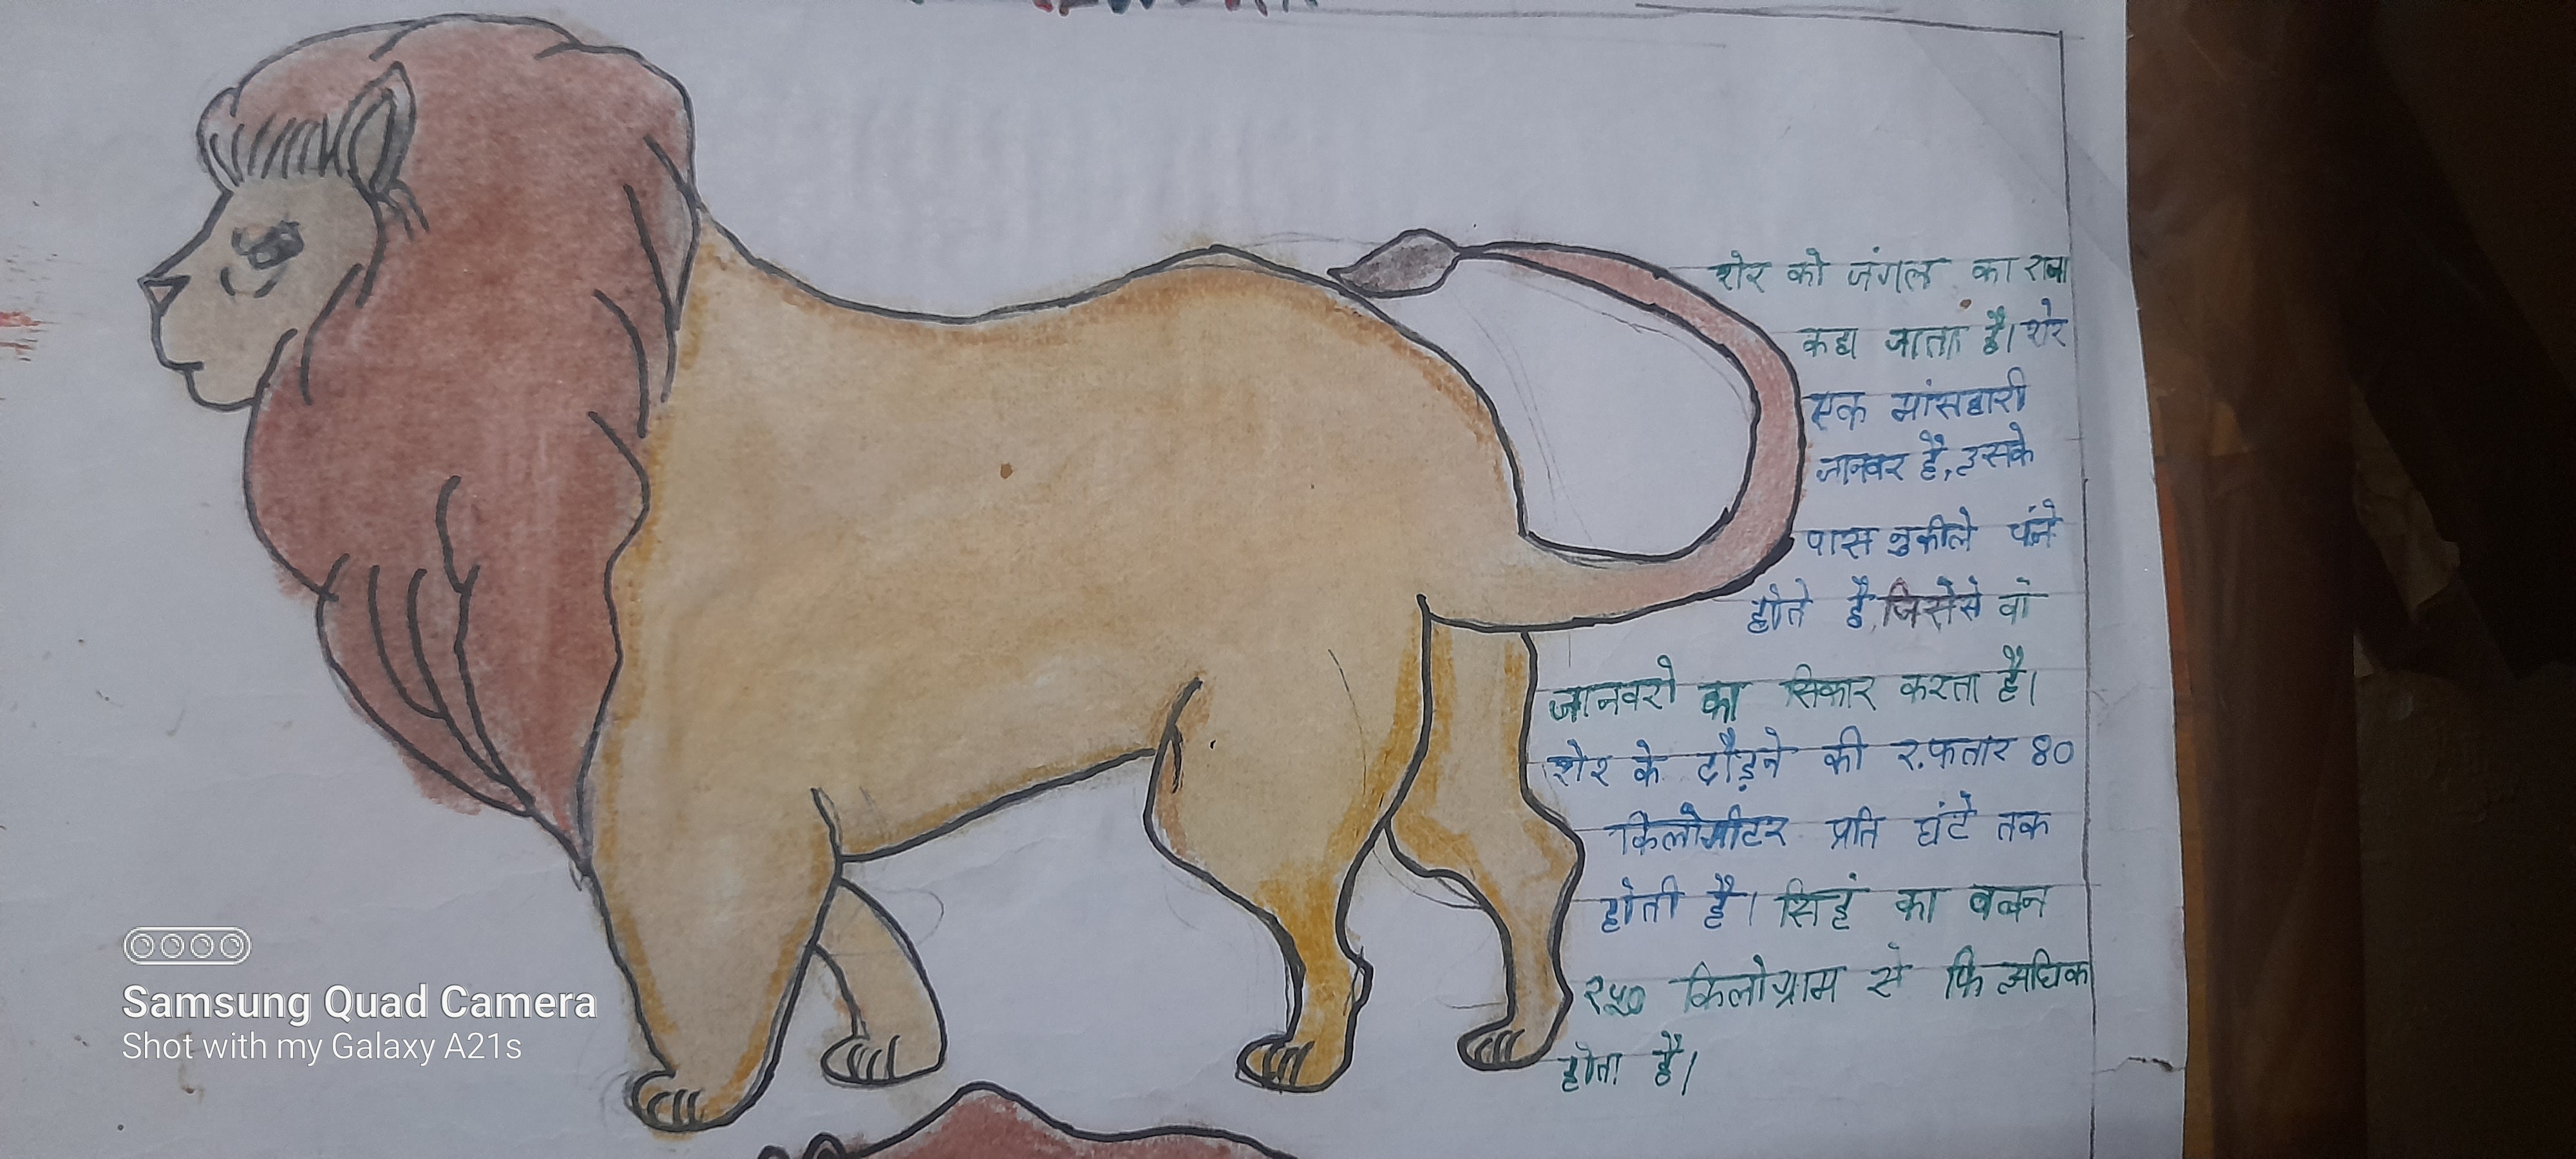 शेर को जंगल का राजा
कहा जाता है। शेर
एक मांसहारी
जानवर है, इसके
पास नुकीले पंजे
होते है, जिसेसे वो
जानवरो का सिकार करता है।
शेर के दौड़ने की रफतार ४०
किलोमीटर प्रति घंटे तक
होती है। सिहं का वजन
२५० किलोग्राम से अधिक
होता है।
Samsung Quad Camera
Shot with my Galaxy A21s